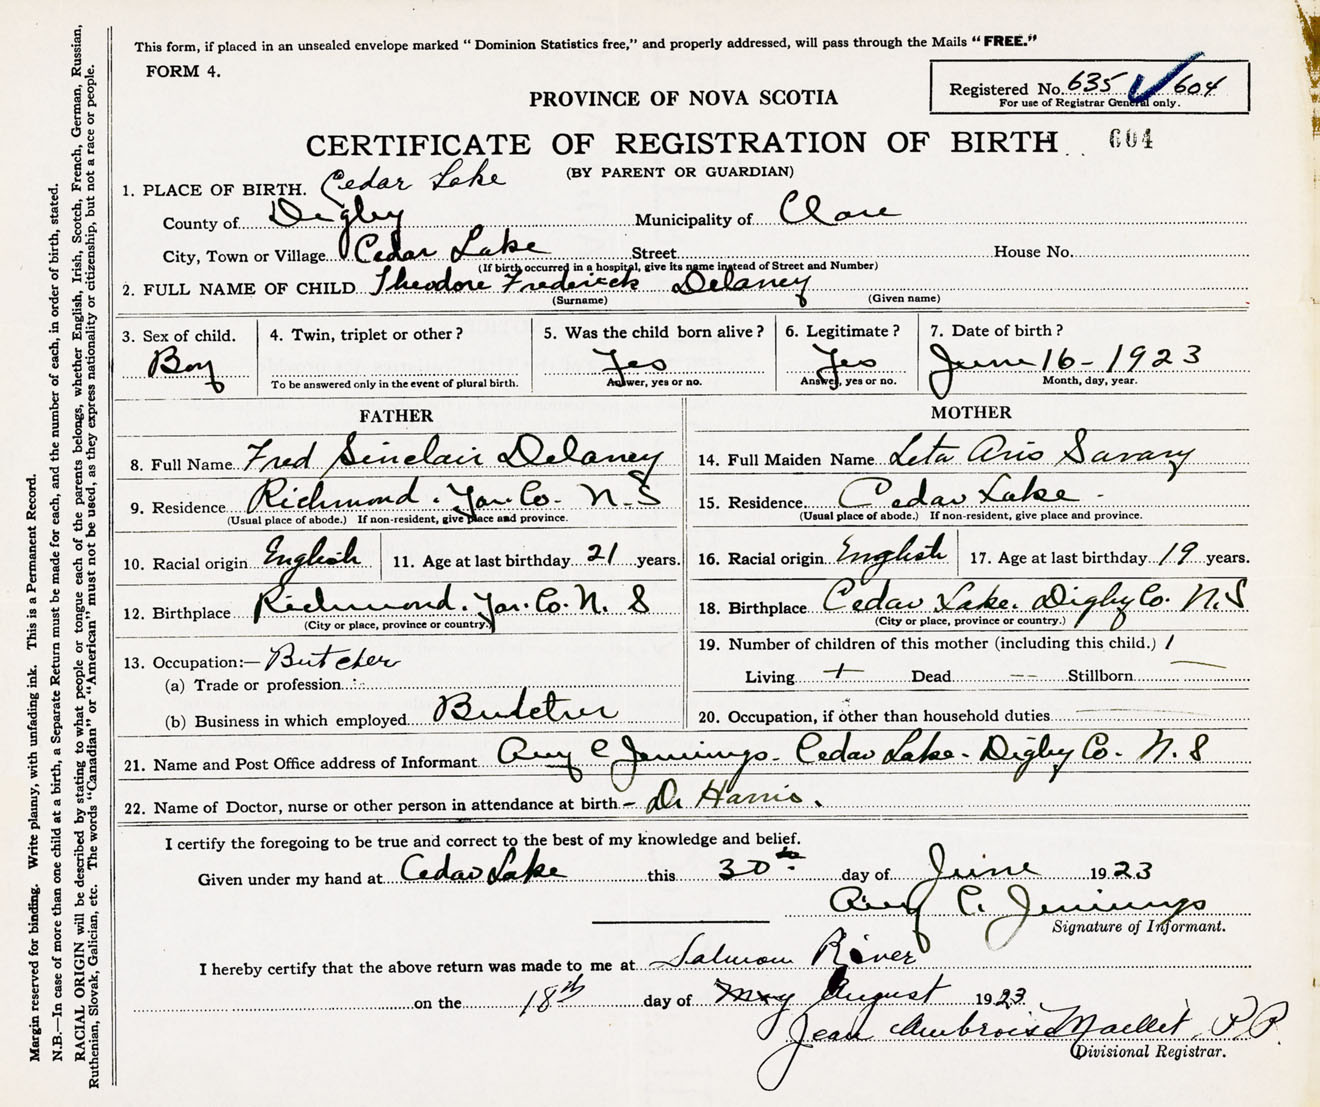 This form, if placed in an unsealed envelope marked “ Dominion Statistics free,” and properly addressed, will pass through the Mails “FREE.”
FORM 4.
Registered No. 635 604
For use of Registrar General only.
PROVINCE OF NOVA SCOTIA
CERTIFICATE OF REGISTRATION OF BIRTH 604
(BY PARENT OR GUARDIAN)
1. PLACE OF BIRTH. Cedar Lake
County of Digby Municipality of Clare
City, Town or Village Cedar Lake Street House No.
(If birth occurred in a hospital, give its name instead of Street and Number)
2. FULL NAME OF CHILD Theodore Frederick Delaney
(Surname) (Given name)
3. Sex of child. 4. Twin, triplet or other? 5. Was the child born alive? 6. Legitimate? 7. Date of birth?
Boy Yes Yes June 16 - 1923
To be answered only in the event of plural birth. Answer, yes or no. Answer, yes or no. Month, day, year.
FATHER
8. Full Name Fred Sinclair Delaney
9. Residence Richmond. Yar. Co. N. S
(Usual place of abode.) If non-resident, give place and province.
10. Racial origin English 11. Age at last birthday 21 years.
12. Birthplace Richmond. Yar. Co. N. S
(City or place, province or country.)
13. Occupation:— Butcher
(a) Trade or profession
(b) Business in which employed Butcher
MOTHER
14. Full Maiden Name Leta Savary
15. Residence Cedar Lake -
(Usual place of abode.) If non-resident, give place and province.
16. Racial origin English 17. Age at last birthday 19 years.
18. Birthplace Cedar Lake. Digby Co. N.S
(City or place, province or country.)
19. Number of children of this mother (including this child.) 1
Living Dead — Stillborn —
20. Occupation, if other than household duties
21. Name and Post Office address of Informant Amy C Jennings - Cedar Lake - Digby Co. N. S
22. Name of Doctor, nurse or other person in attendance at birth – Dr Harris.
I certify the foregoing to be true and correct to the best of my knowledge and belief.
Given under my hand at Cedar Lake this 30th day of June 1923
Amy C. Jennings
Signature of Informant.
I hereby certify that the above return was made to me at Salmon River
on the 18th day of May August 1923
Jean Ambroise Maillet P.P.
Divisional Registrar.
Margin reserved for binding. Write plainly, with unfading ink. This is a Permanent Record.
N.B.—In case of more than one child at a birth, a Separate Return must be made for each, and the number of each, in order of birth, stated.
RACIAL ORIGIN will be described by stating to what people or tongue each of the parents belongs, whether English, Irish, Scotch, French, German, Russian,
Ruthenian, Slovak, Galician, etc. The words “Canadian” or “American” must not be used, as they express nationality or citizenship, but not a race or people.